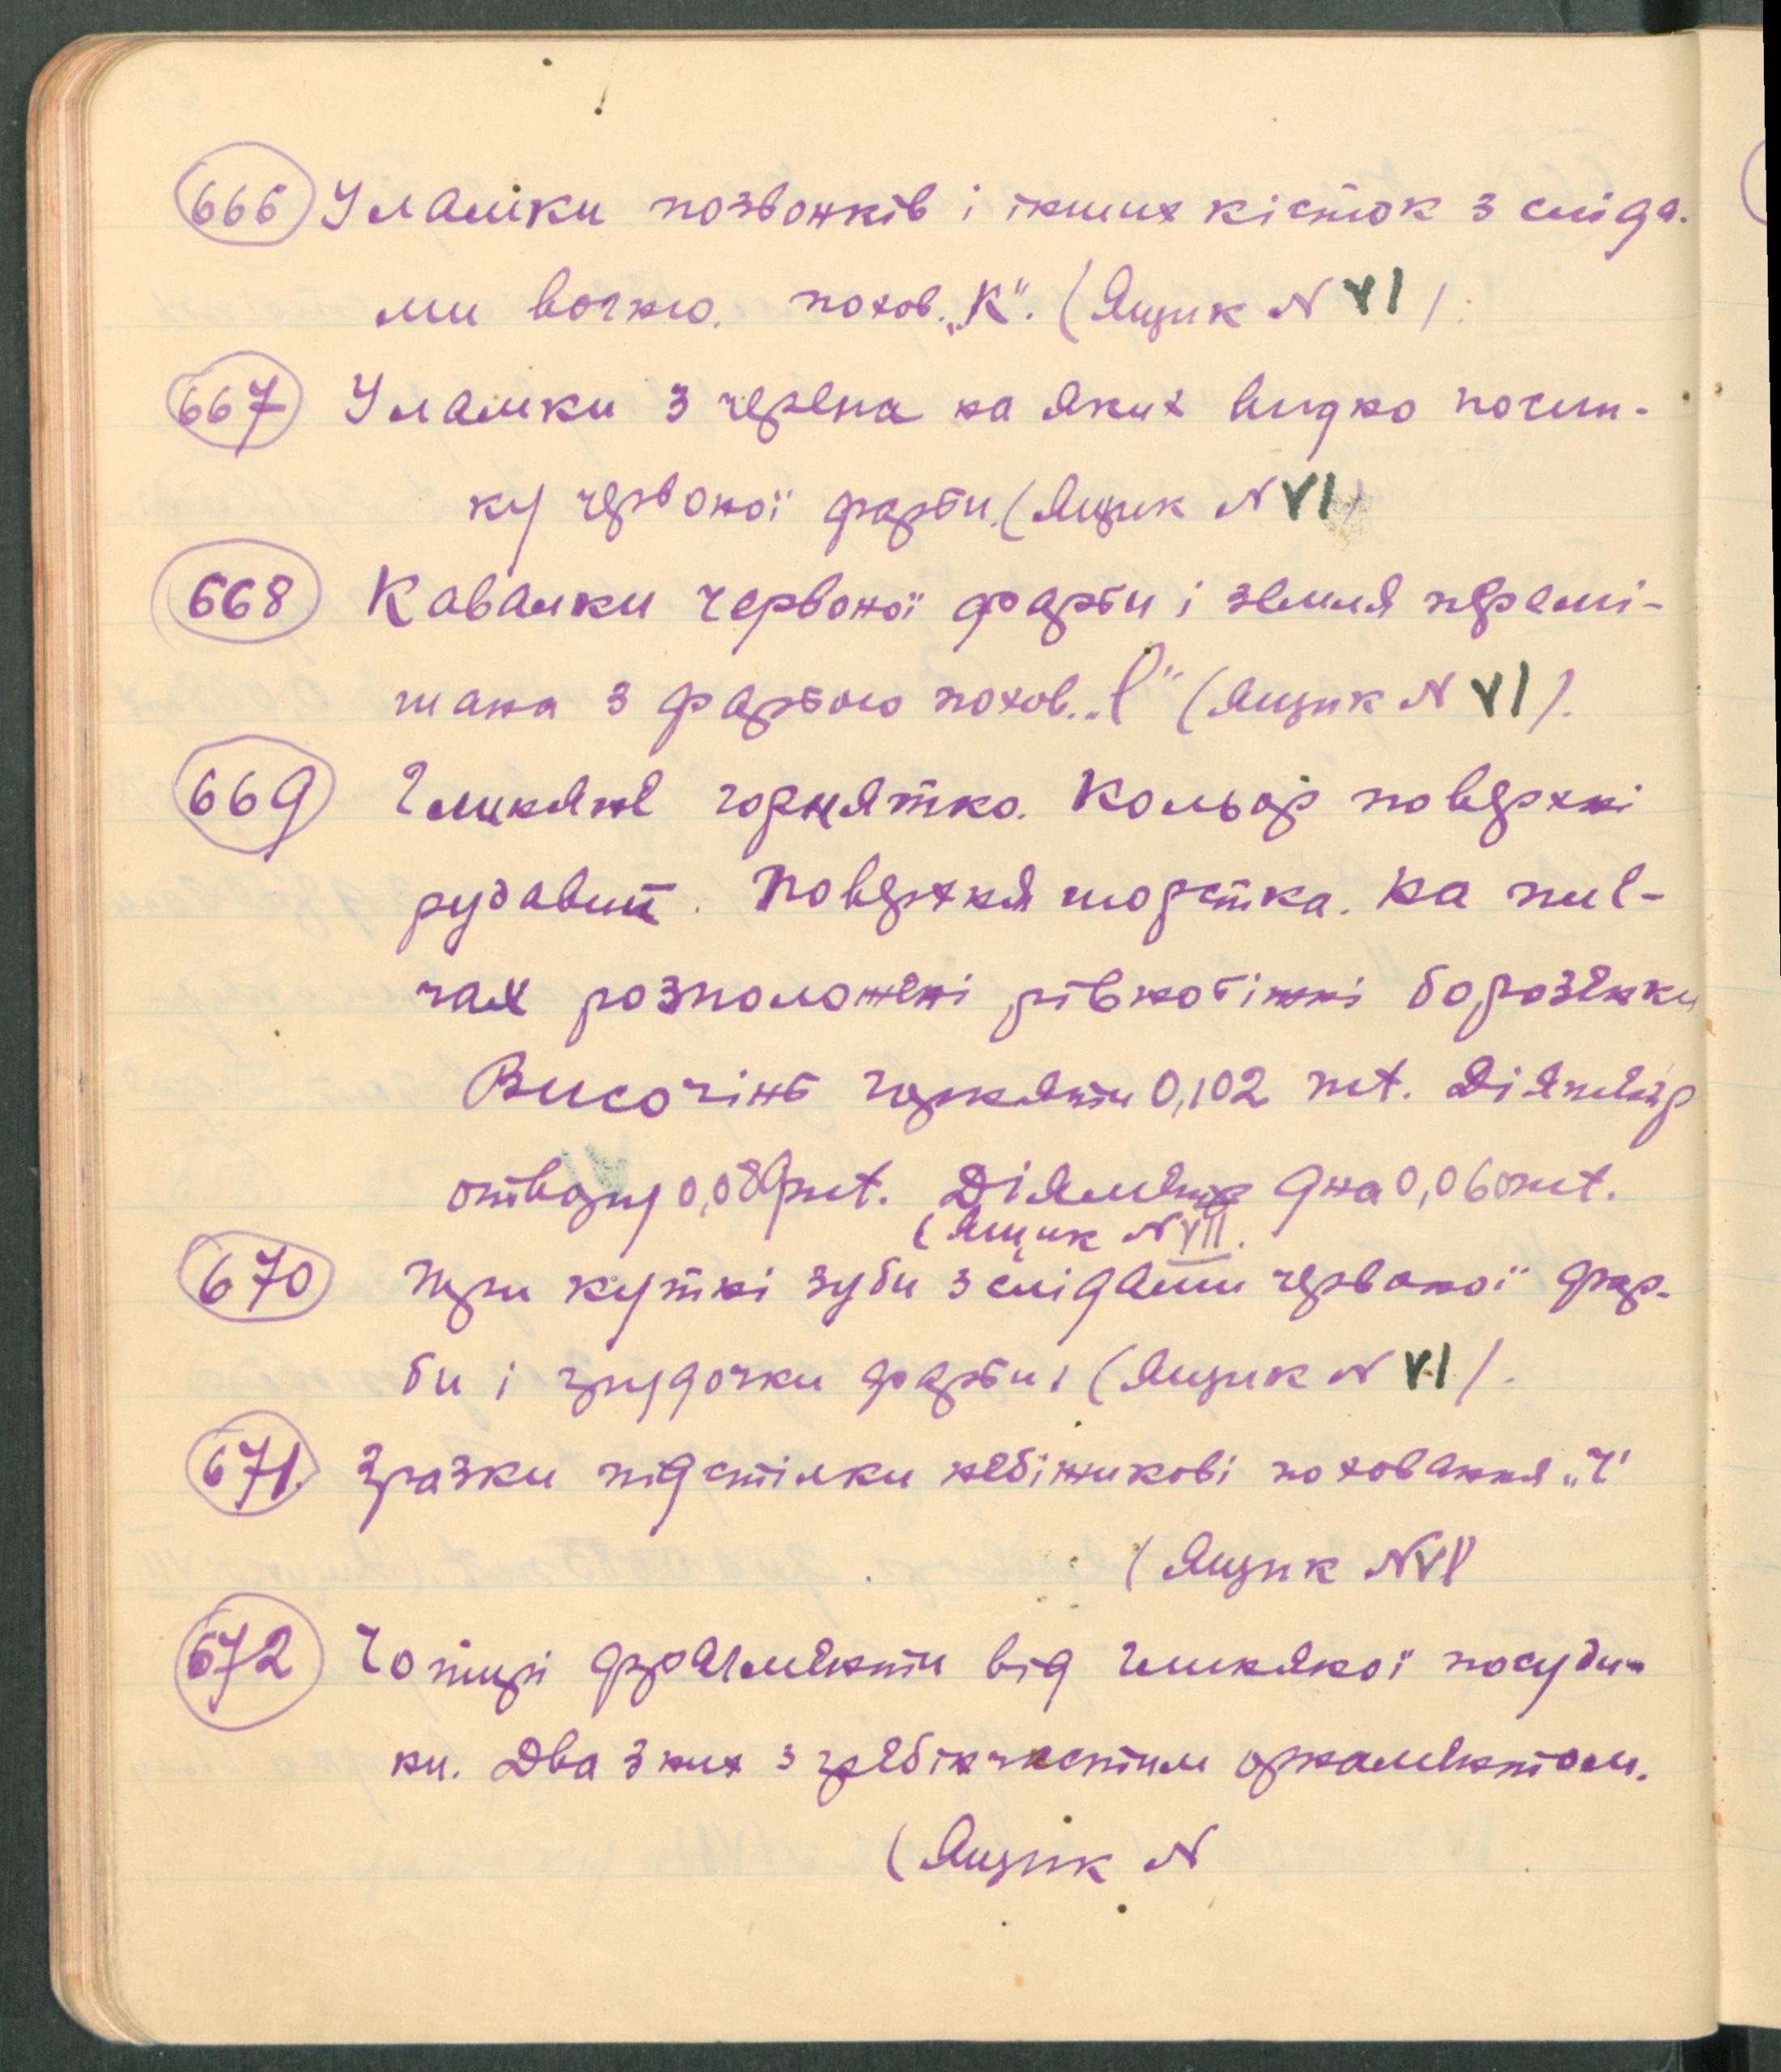 666 Уламки позвонків і інших кісток з сліда-
ми вогню. похов. „К“. (Ящик N VI).
667 Уламки з черепа на яких видко посип-
ку червоної фарби. (Ящик N VI)
668 Кавалки червоної фарби і земля перемі-
шана з фарбою похов. „l“ (Ящик N VI).
669 Глиняне горнятко. Кольор поверхні
рудавий. Поверхня шорстка. На пле-
чах розположені рівнобіжні борозенки
Височінь горняти 0,102 mt. Діяметр
отвору 0,089 mt. Діяметр дна 0,060 mt.
(Ящик N VII.
670 Три кутні зуби з слідами червоної фар-
би і грудочки фарби, (Ящик N VI).
671. Зразки підстілки небіжчикові поховання
(Ящик N VI
672 Чотирі фрагменти від глиняної посуди-
ни. Два з них з гребінчастим орнаментом.
(Ящик N